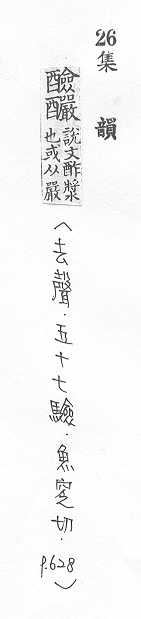 26集韻
醶釅說文酢漿也或从嚴
(去聲．五十七驗．魚窆切．p.628)